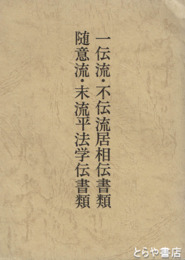 一伝流・不伝流居相伝書類
随意流・末流平法学伝書類
とらや書店